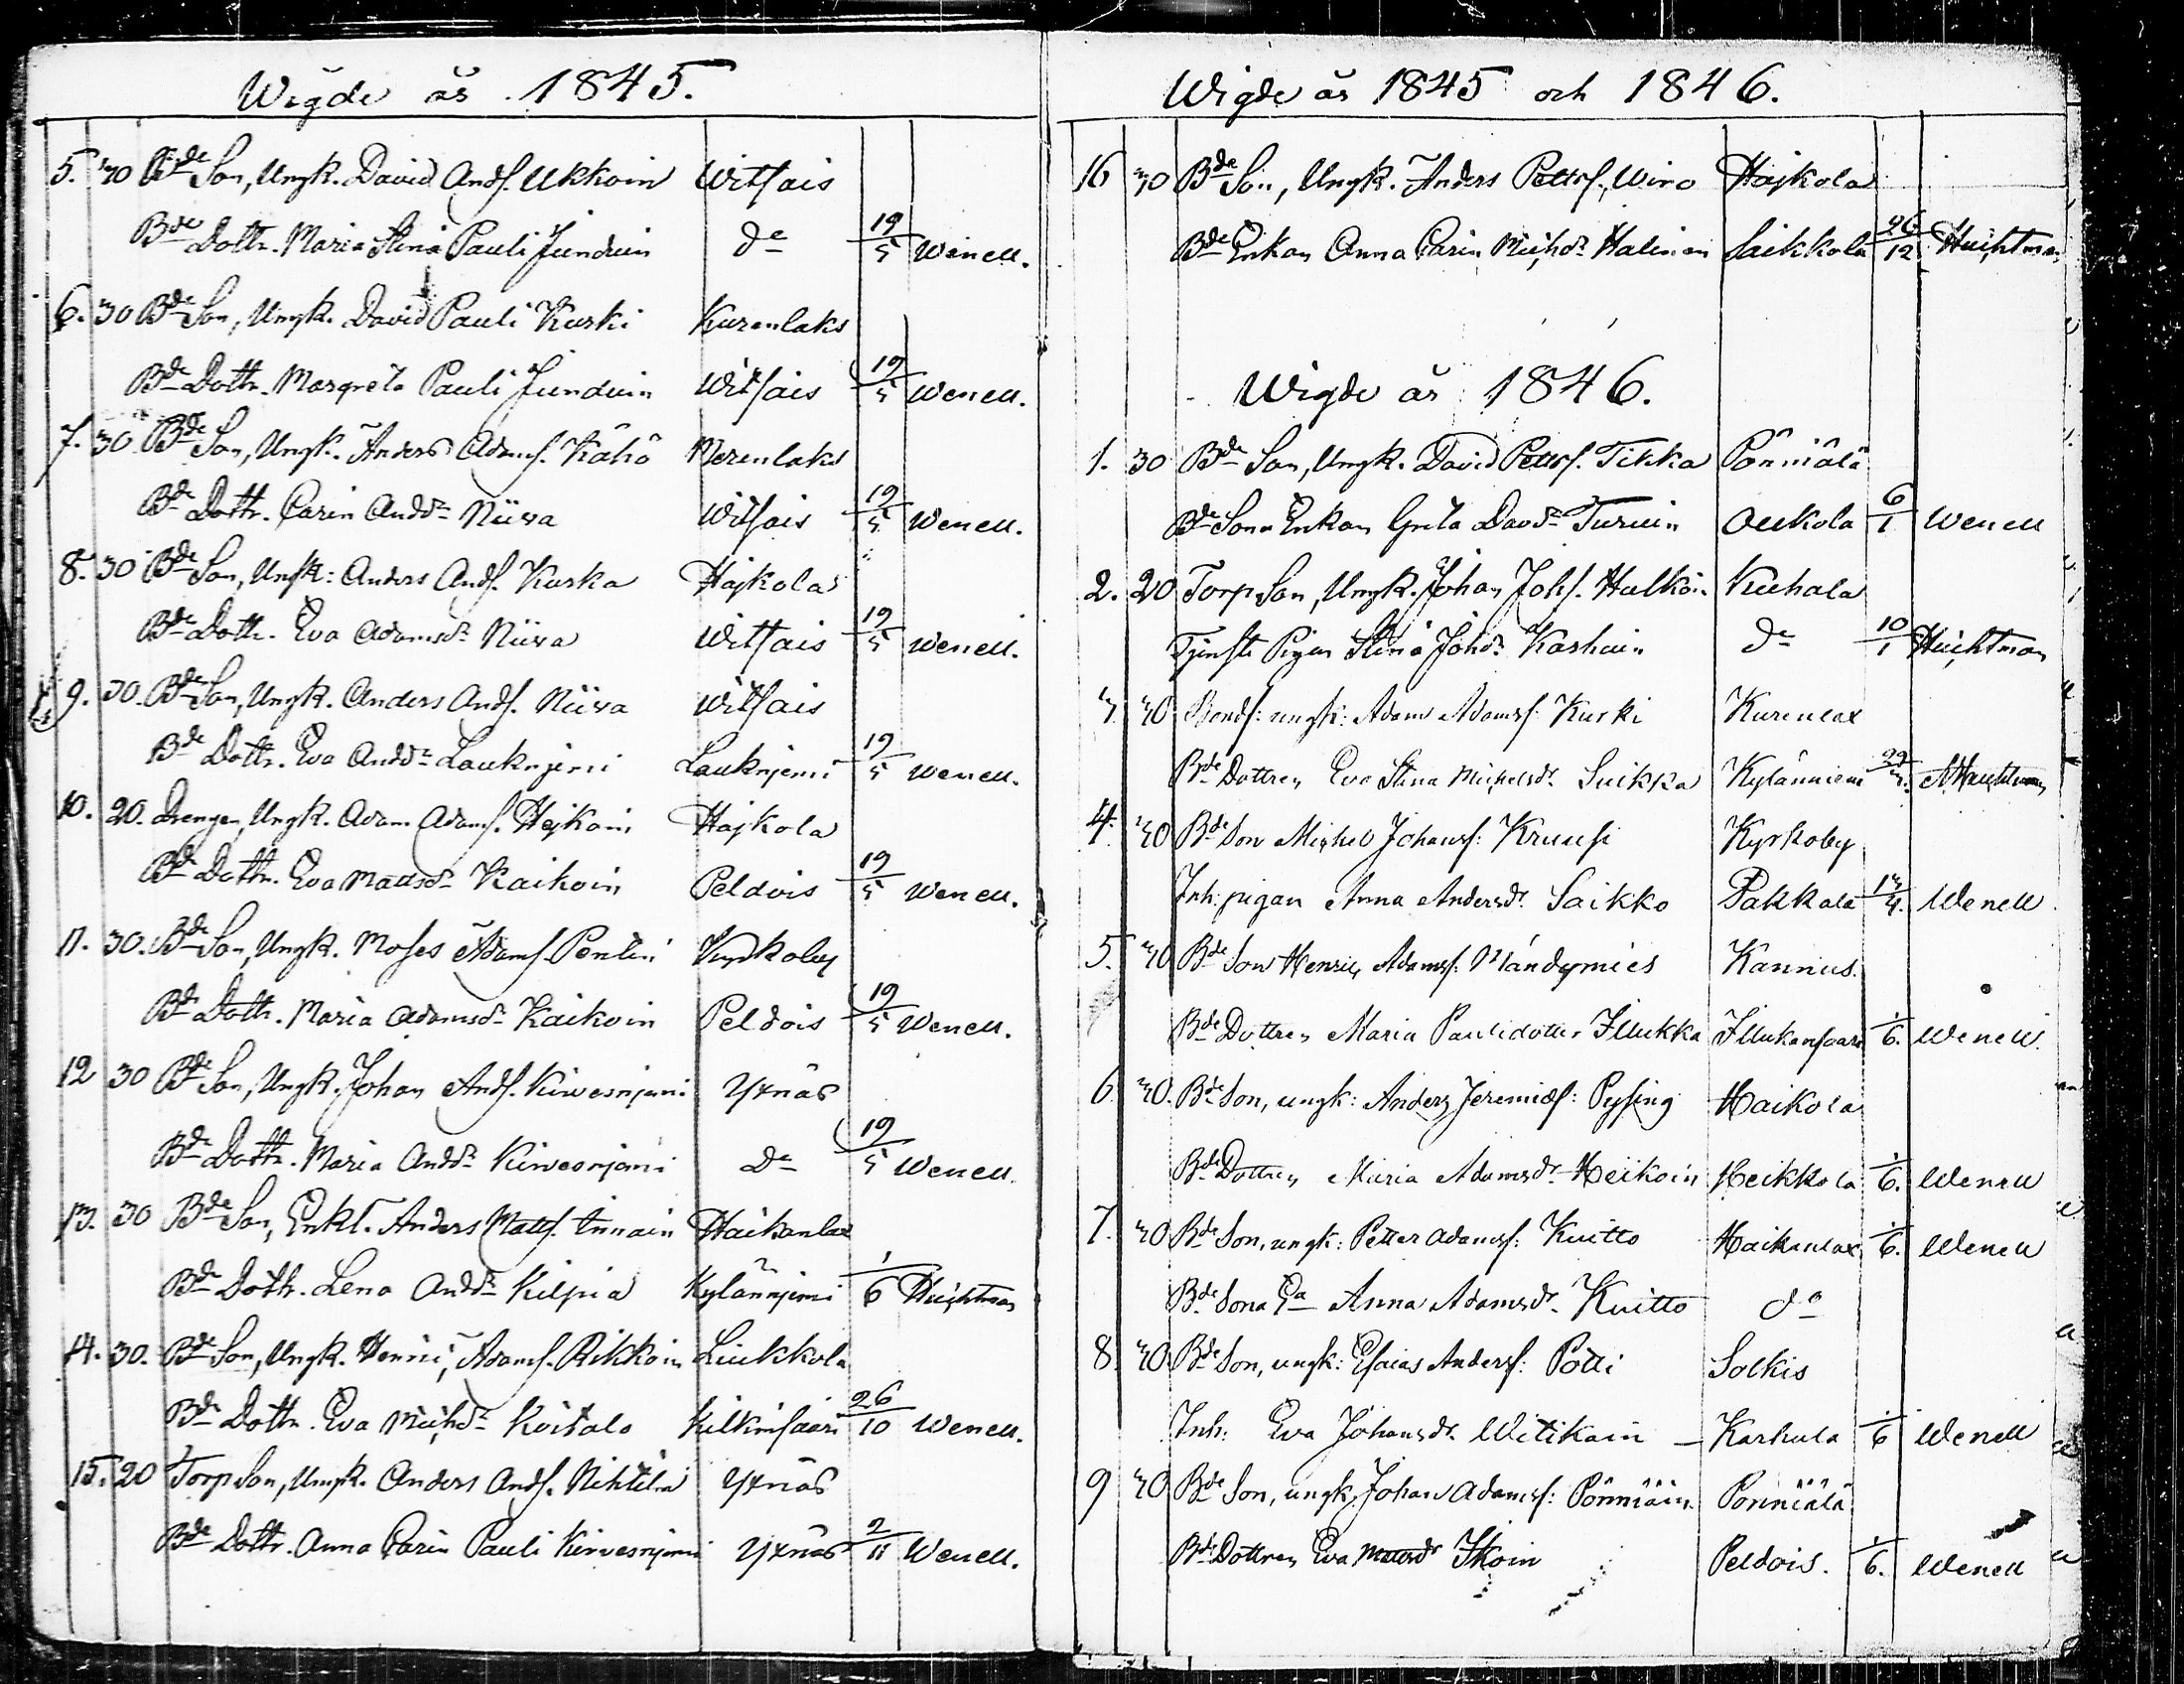 Wigde år 1845.
5. 30 Bde Son, Ungk. David Ands. Ukkoin Witsais
Bde Dottr. Maria Stina Pauli Junduin de 19/5 Wenell.
6. 30 Bde Son, Ungk. David Pauli Kurki Kurenlaks
Bde Dottr. Margreta Pauli Junduin Witsais 19/5 Wenell.
7. 30 Bde Son, Ungk. Anders Adams. Kähö Merenlaks
Bde Dottr. Carin Andd. Niiva Witsais 19/5 Wenell.
8. 30 Bde Son, Ungk: Anders Ands. Kurka Hajkola
Bde Dottr. Eva Adamsdr Niiva Witsais 19/5 Wenell.
9. 30. Bde Son, Ungk. Anders Ands. Niiva Witsais
Bde Dottr. Eva Anddr Lauknjemi Lauknjemi 19/5 Wenell.
10. 20. Drengen, Ungk. Adam Adams. Hejkoin Hajkola
Bde Dottr. Eva Madsdr Kaikoin Peldois 19/5 Wenell.
11. 30. Bde Son, Ungk. Moses Adams. Penttin Kyrkoby
Bde Dottr. Maria Adamsdr Kaikoin Peldois 19/5 Wenell.
12 30 Bde Son, Ungk. Johan Ands. Kirvesnjemi Yxnäs
Bde Dottr. Maria Anddr Kirvesnjemi de 19/5 Wenell.
13. 30 Bde Son, Enkl. Anders Matts. Innain Haikanlax
Bde Dottr. Lena Anddr Kilpia Kylännjemi 1/6 Heichtman
14. 30. Bde Son, Ungk. Henric Adams. Rikkoin Liukkola
Bde Dottr. Eva Michdr Koitalo Kilkinsaari 26/10 Wenell.
15. 20 Torp Son, Ungk. Anders Ands. Nihtilä Yxnäs
Bde Dottr. Anna Carin Pauli Kirvesnjemi Yxnäs 2/11 Wenell.
Wigde år 1845 och 1846.
16 30 Bde Son, Ungk. Anders Petters. Wiro Hajkola
Bde Enkan Anna Carin Michdr Halinen Saikkola 26/12 Heichtman
Wigde år 1846.
1. 30 Bde Son, Ungk. David Petters. Tikka Pönniälä
Bde Sona Enkan Greta Davdr Turuin Oukola 6/1 Wenell
2. 20 Torp Son, Ungk. Johan Johs. Hulkoin Kuhala
Tjenste Pigan Stina Johdr Karhuin de 10/1 Heichtman
3. 30 Bonds: ungk: Adam Adamss: Kurki Kurenlax
Bde Dottren Eva Stina Michelsdr Suikka Kylänniemi 29/3.
4. 30 Bde Son Michel Johanss: Kruusi Kyrkoby
Inh: pigan Anna Andersdr. Saikko Pakkala 13/4. Wenell
5. 30 Bde Son Henric Adamss: Mändymies Kannus.
Bde Dottren Maria Paulidotter Illukka Illukansaari 1/6. Wenell
6 30. Bde Son, ungk: Anders Jeremiæs: Pysing Haikola
Bde Dottren Maria Adamsdr Heikoin Heikkola 1/6. Wenell
7. 30 Bde Son, ungk: Petter Adamss: Kuitto Haikanlax 1/6. Wenell
Bde Sona Ea Anna Adamsdr. Kuitto do
8. 30 Bde Son, ungk: Esaias Anderss: Pötti Solkis
Inh: Eva Johansdr. Witikain — Karhula 1/6 Wenell
9 30 Bde Son, ungk. Johan Adamss: Pönniäin Pönniälä
Bde Dottren Eva Mattsdr Ikoin Peldois. 1/6. Wenell